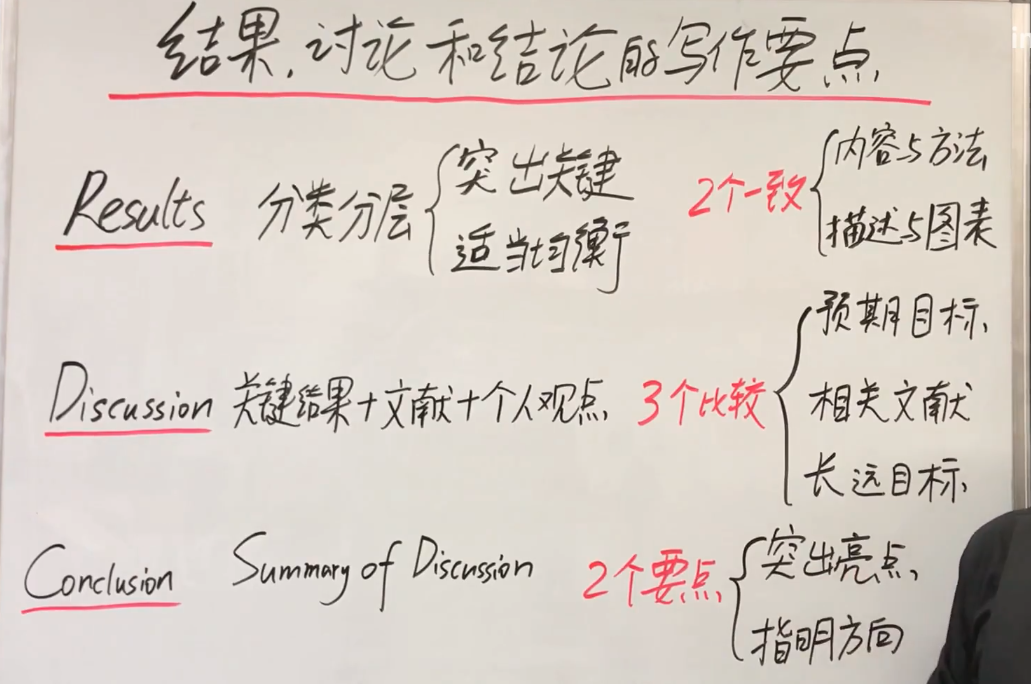 结果,讨论和结论的写作要点
Results 分类分层
突出关键
适当均衡
2个一致
内容与方法
描述与图表
Discussion 关键结果+文献+个人观点
3个比较
预期目标
相关文献
长远目标
Conclusion Summary of Discussion
2个要点
突出亮点
指明方向